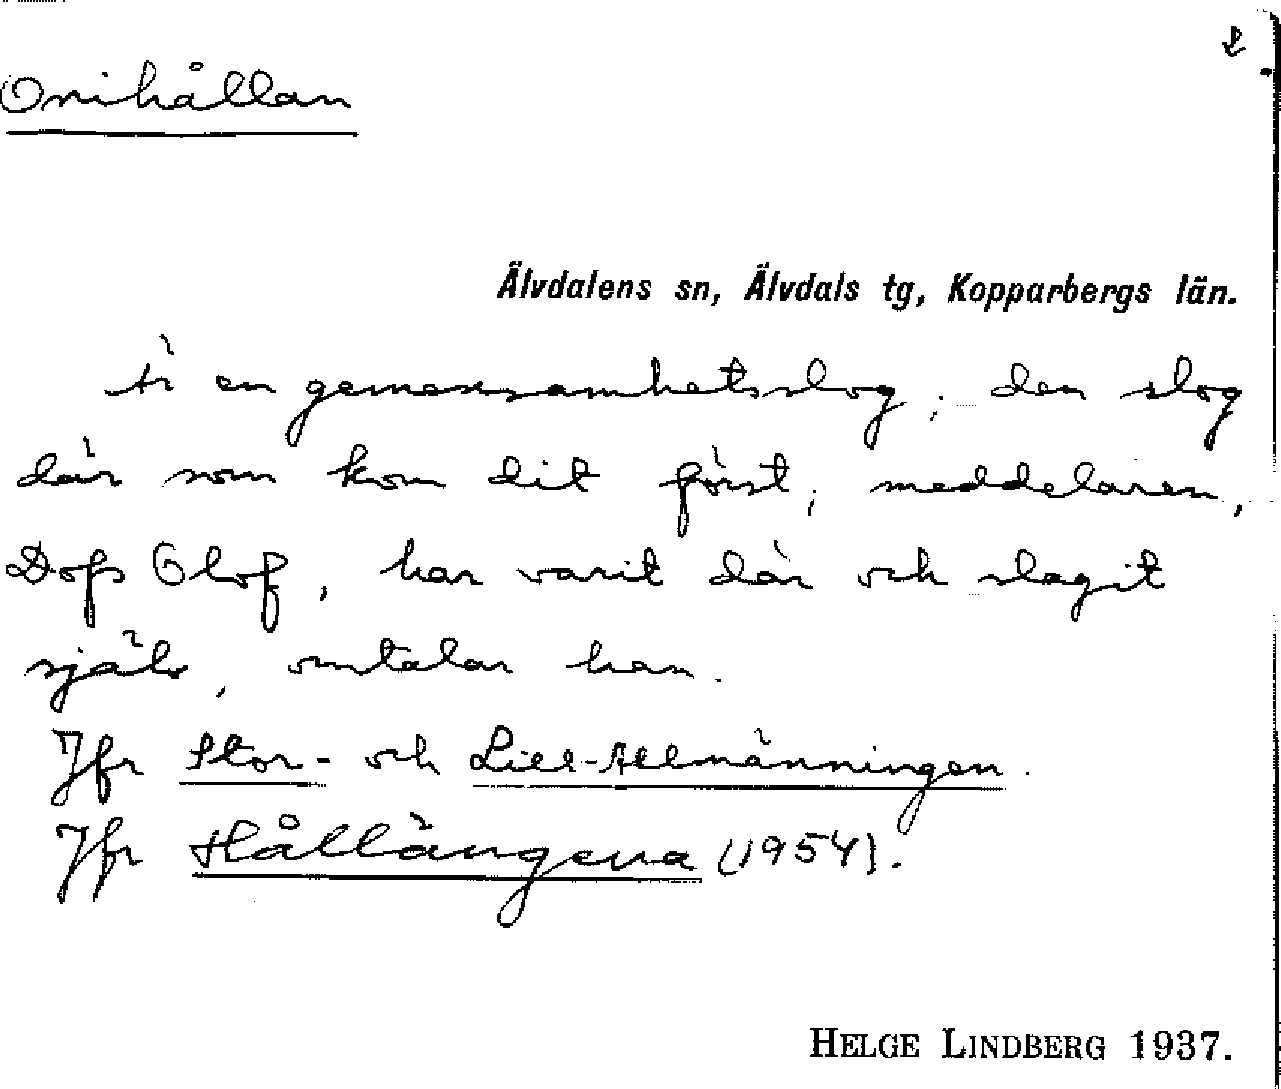 2.
Onihållan
Älvdalens sn, Älvdals tg, Kopparbergs län.
Är en gemensamhetsslog; den slog
där som kom dit först; meddelaren,
Dofs Olof, har varit där och slagit
själv, omtalar han.
Jfr Stor- och Lill-Allmänningen.
Jfr Hållängena (1954).
HELGE LINDBERG 1937.